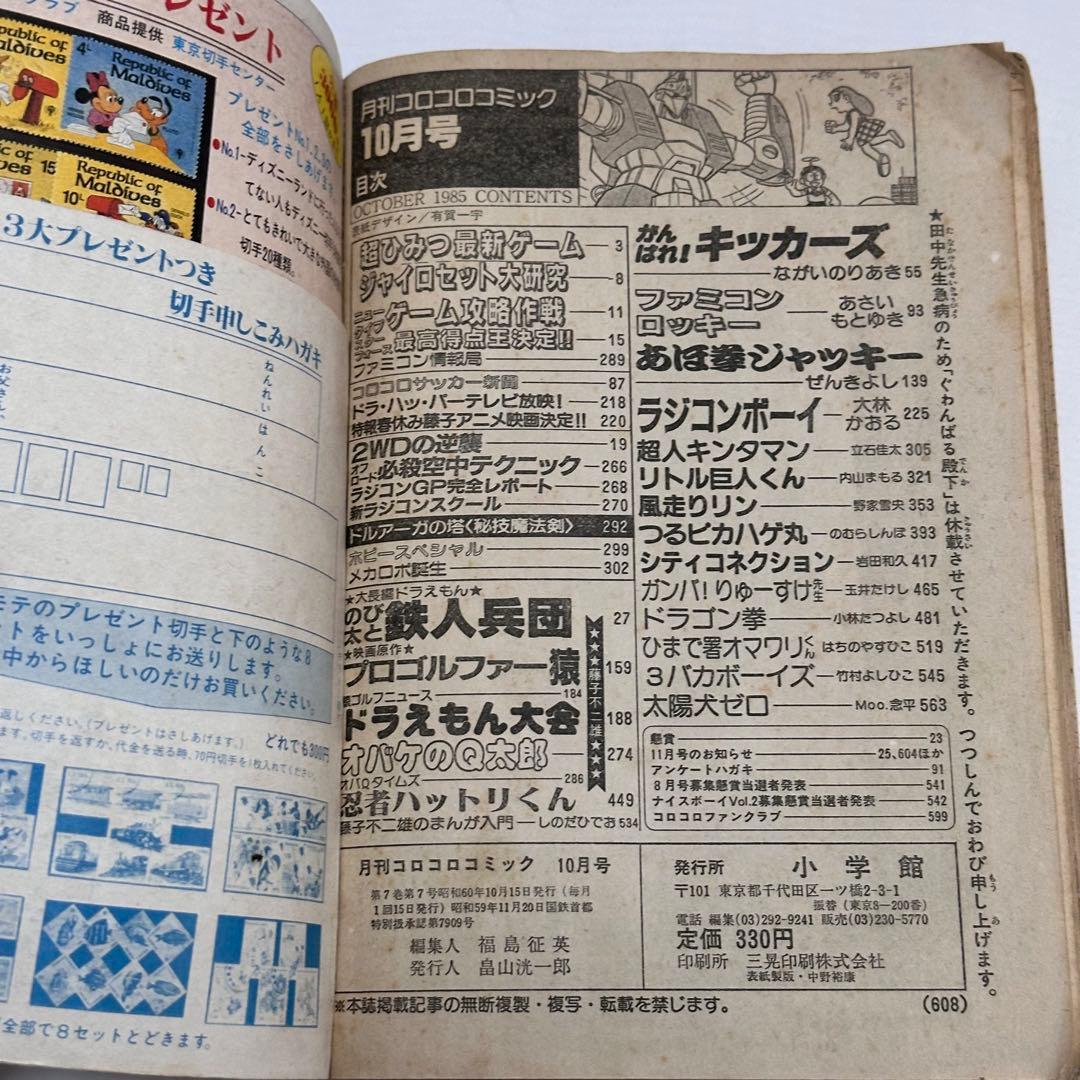 クラブ
商品提供 東京切手センター
レゼント
Republic of Maldives
4L
Republic of Maldives
15
Republic of Maldives
10L
Republic of Maldives
プレゼントNo.1,2,3の
全部をさしあげます
●No.1〜ディズニーランドに
てない人もディズニー
●No.2〜とてもきれいで大きな
切手20種類。
3大プレゼントつき
切手申しこみハガキ
ねんれい
はんこ
モテのプレゼント切手と下のような8
ットをいっしょにお送りします。
中からほしいのだけお買いください。
返しください。(プレゼントはさしあげます。) どれでも300円
ます。切手を返すか、代金を送る時、70円切手を1枚入れてください。
全部で8セットとどきます。
月刊コロコロコミック
10月号
目次
OCTOBER 1985 CONTENTS
表紙デザイン/有賀一宇
超ひみつ最新ゲーム 3
ジャイロセット大研究 8
ニュータイプゲーム攻略作戦 11
スターフォース最高得点王決定!! 15
ファミコン情報局 289
コロコロサッカー新聞 87
ドラ・ハッ・パーテレビ放映! 218
特報春休み藤子アニメ映画決定!! 220
2WDの逆襲 19
オフロード必殺空中テクニック 266
ラジコンGP完全レポート 268
新ラジコンスクール 270
ドルアーガの塔〈秘技魔法剣〉 292
ホビースペシャル 299
メカロボ誕生 302
★大長編ドラえもん★
のび太と鉄人兵団 27
★映画原作★
プロゴルファー猿 159
猿ゴルフニュース 184
ドラえもん大会 188
オバケのQ太郎 274
オバQタイムズ 286
忍者ハットリくん 449
★★★藤子不二雄★★★
藤子不二雄のまんが入門 しのだひでお 534
がんばれ!キッカーズ
ながいのりあき 55
ファミコンロッキー あさいもとゆき 93
あほ拳ジャッキー
ぜんきよし 139
ラジコンボーイ 大林かおる 225
超人キンタマン 立石佳太 305
リトル巨人くん 内山まもる 321
風走りリン 野家雪央 353
つるピカハゲ丸 のむらしんぼ 393
シティコネクション 岩田和久 417
ガンバ!りゅーすけ先生 玉井たけし 465
ドラゴン拳 小林たつよし 481
ひまで署オマワリくん はちのやすひこ 519
3バカボーイズ 竹村よしひこ 545
太陽犬ゼロ Moo.念平 563
懸賞 23
11月号のお知らせ 25、604ほか
アンケートハガキ 91
8月号募集懸賞当選者発表 541
ナイスボーイVol.2募集懸賞当選者発表 542
コロコロファンクラブ 599
★田中先生急病のため「ぐわんばる殿下」は休載させていただきます。つつしんでおわび申し上げます。
月刊コロコロコミック 10月号
第7巻第7号昭和60年10月15日発行(毎月
1回15日発行)昭和59年11月20日国鉄首都
特別扱承認第7909号
編集人 福島征英
発行人 畠山洸一郎
発行所 小学館
〒101 東京都千代田区一ツ橋2-3-1
振替(東京8—200番)
電話 編集(03)292-9241 販売(03)230-5770
定価 330円
印刷所 三晃印刷株式会社
表紙製版・中野裕康
※本誌掲載記事の無断複製・複写・転載を禁じます。
(608)